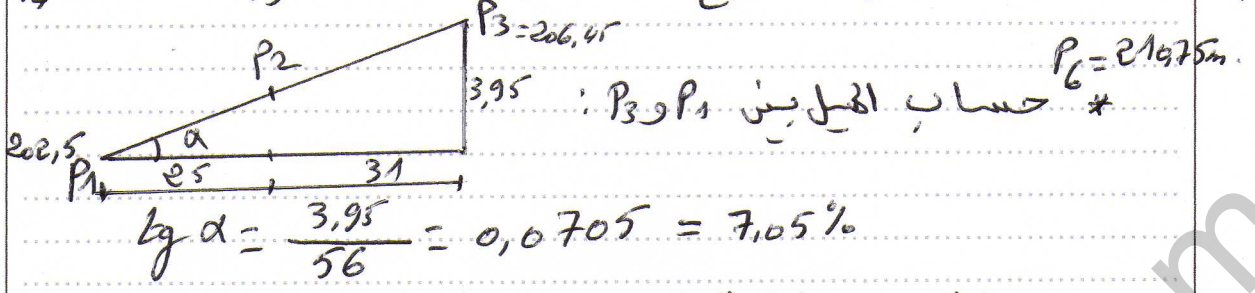 P3=206,45
P2
P6=210,75m.
* حساب الميل بين P1 و P3 :
3,95
202,5
α
P1
25
31
tg α = 3,95/56 = 0,0705 = 7,05%
m